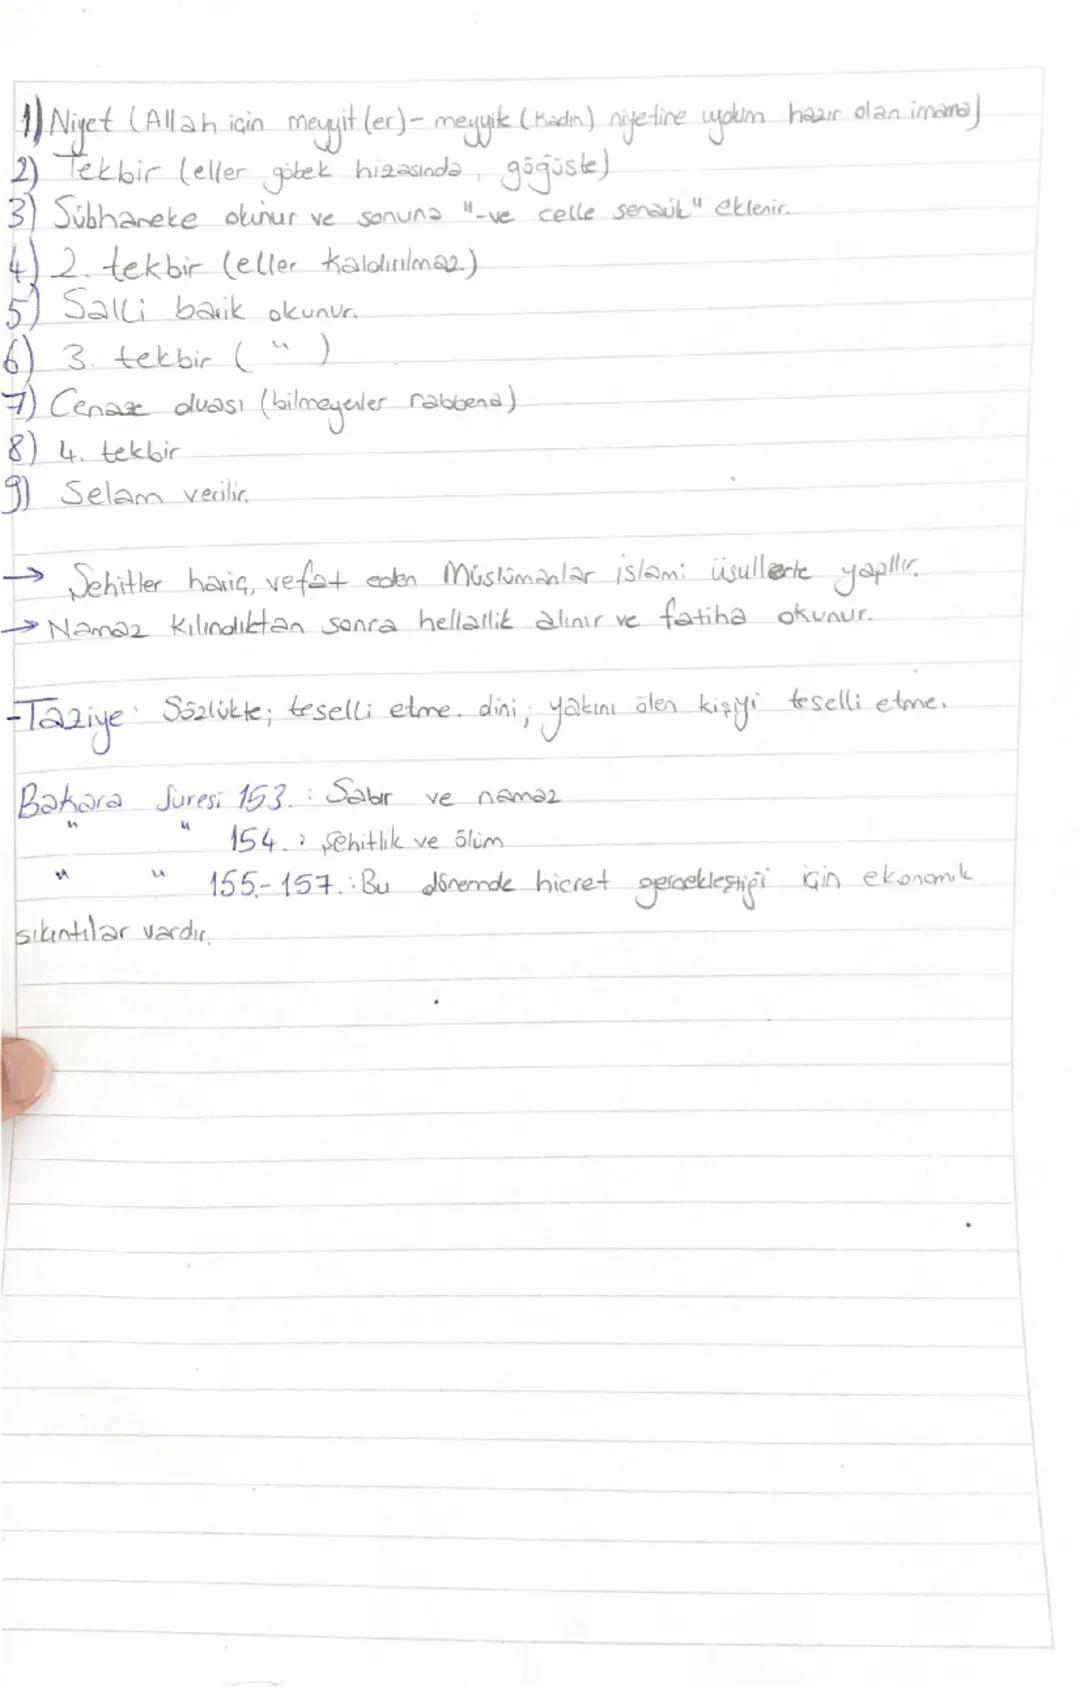 1) Niyet (Allah için meyyit (er) - meyyite (Kadın) niyetine uydum hazır olan imama)
2) Tekbir (eller göbek hizasında, göğüste)
3) Sübhaneke okunur ve sonuna "-ve celle senaük" eklenir.
4) 2. tekbir (eller kaldırılmaz.)
5) Salli barik okunur.
6) 3. tekbir ( " )
7) Cenaze duası (bilmeyenler rabbena)
8) 4. tekbir
9) Selam verilir.
→ Şehitler hariç, vefat eden Müslümanlar islami üsullerle yapılır.
→ Namaz kılındıktan sonra hellallik alınır ve fatiha okunur.
-Taziye: Sözlükte; teselli etme. dini; yakını ölen kişiyi teselli etme.
Bakara Suresi 153. : Sabır ve namaz
" " 154. : şehitlik ve ölüm
" " 155.-157. : Bu dönemde hicret gerçekleştiği için ekonomik
sıkıntılar vardır.